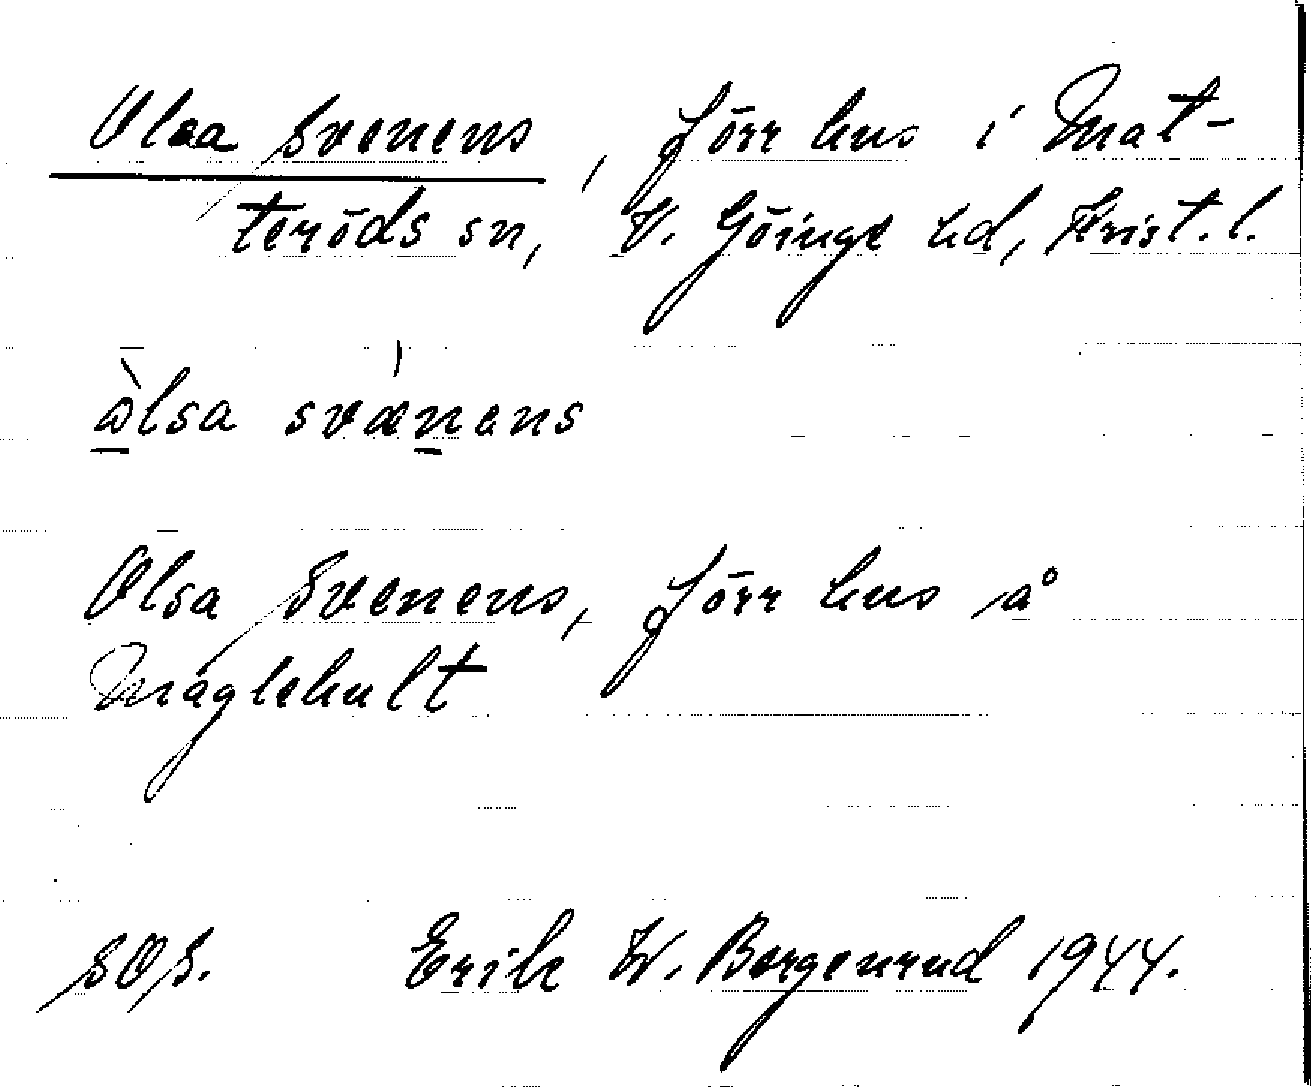 Olsa Svenens, förr hus i Mat-
teröds sn, V. Göinge hd, Krist. l.
ɷ̀lsa svæ̀nens
Olsa Svenens, förr hus å
Maglehult
SOS. Erik W. Bergenrud 1944.